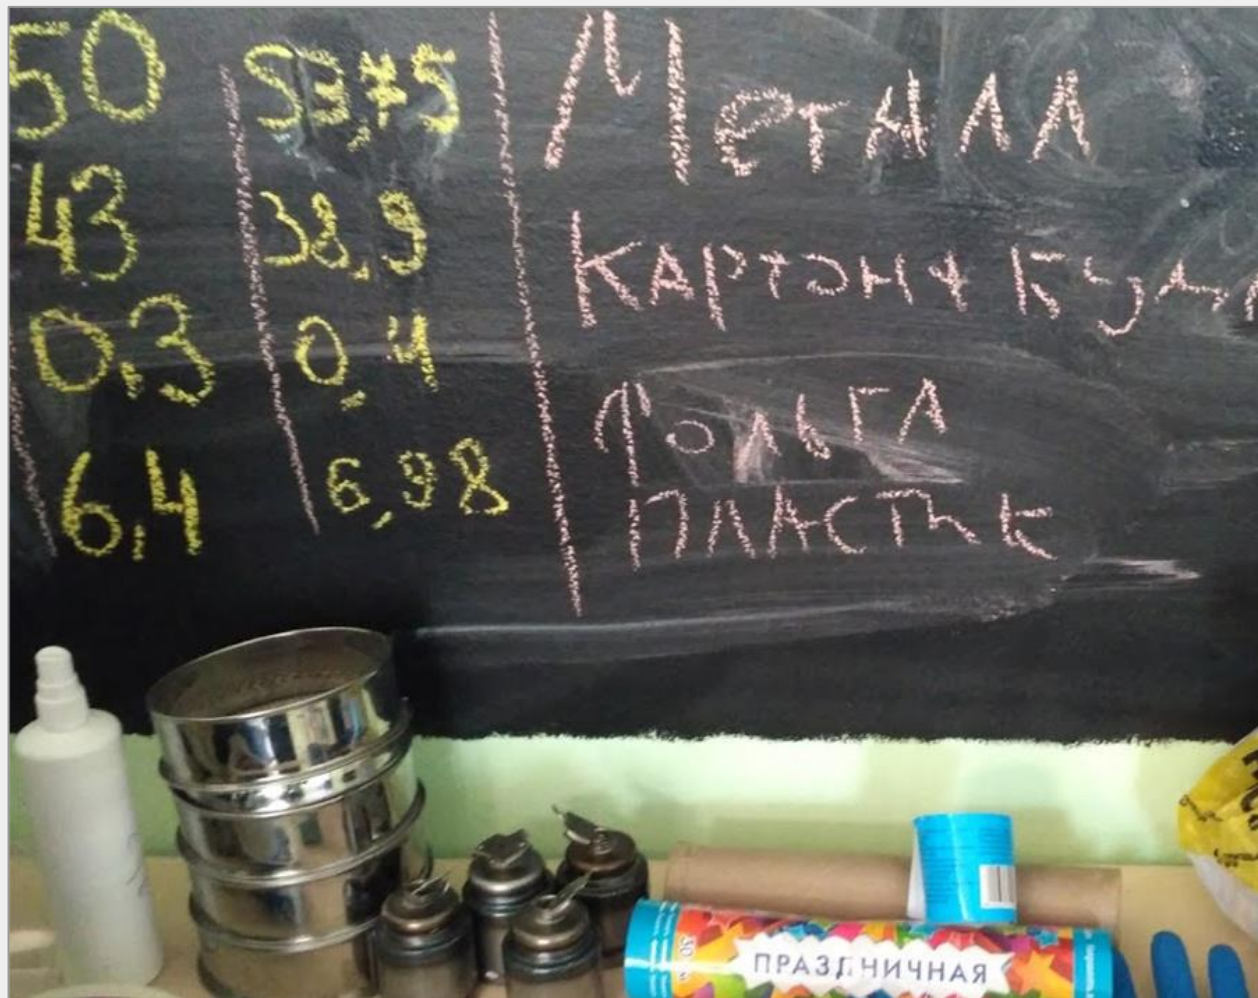 50 53,75 Металл
43 38,9 картон + бума
0,3 0,4 Фольга
6,4 6,98 Пластик
ПРАЗДНИЧНАЯ